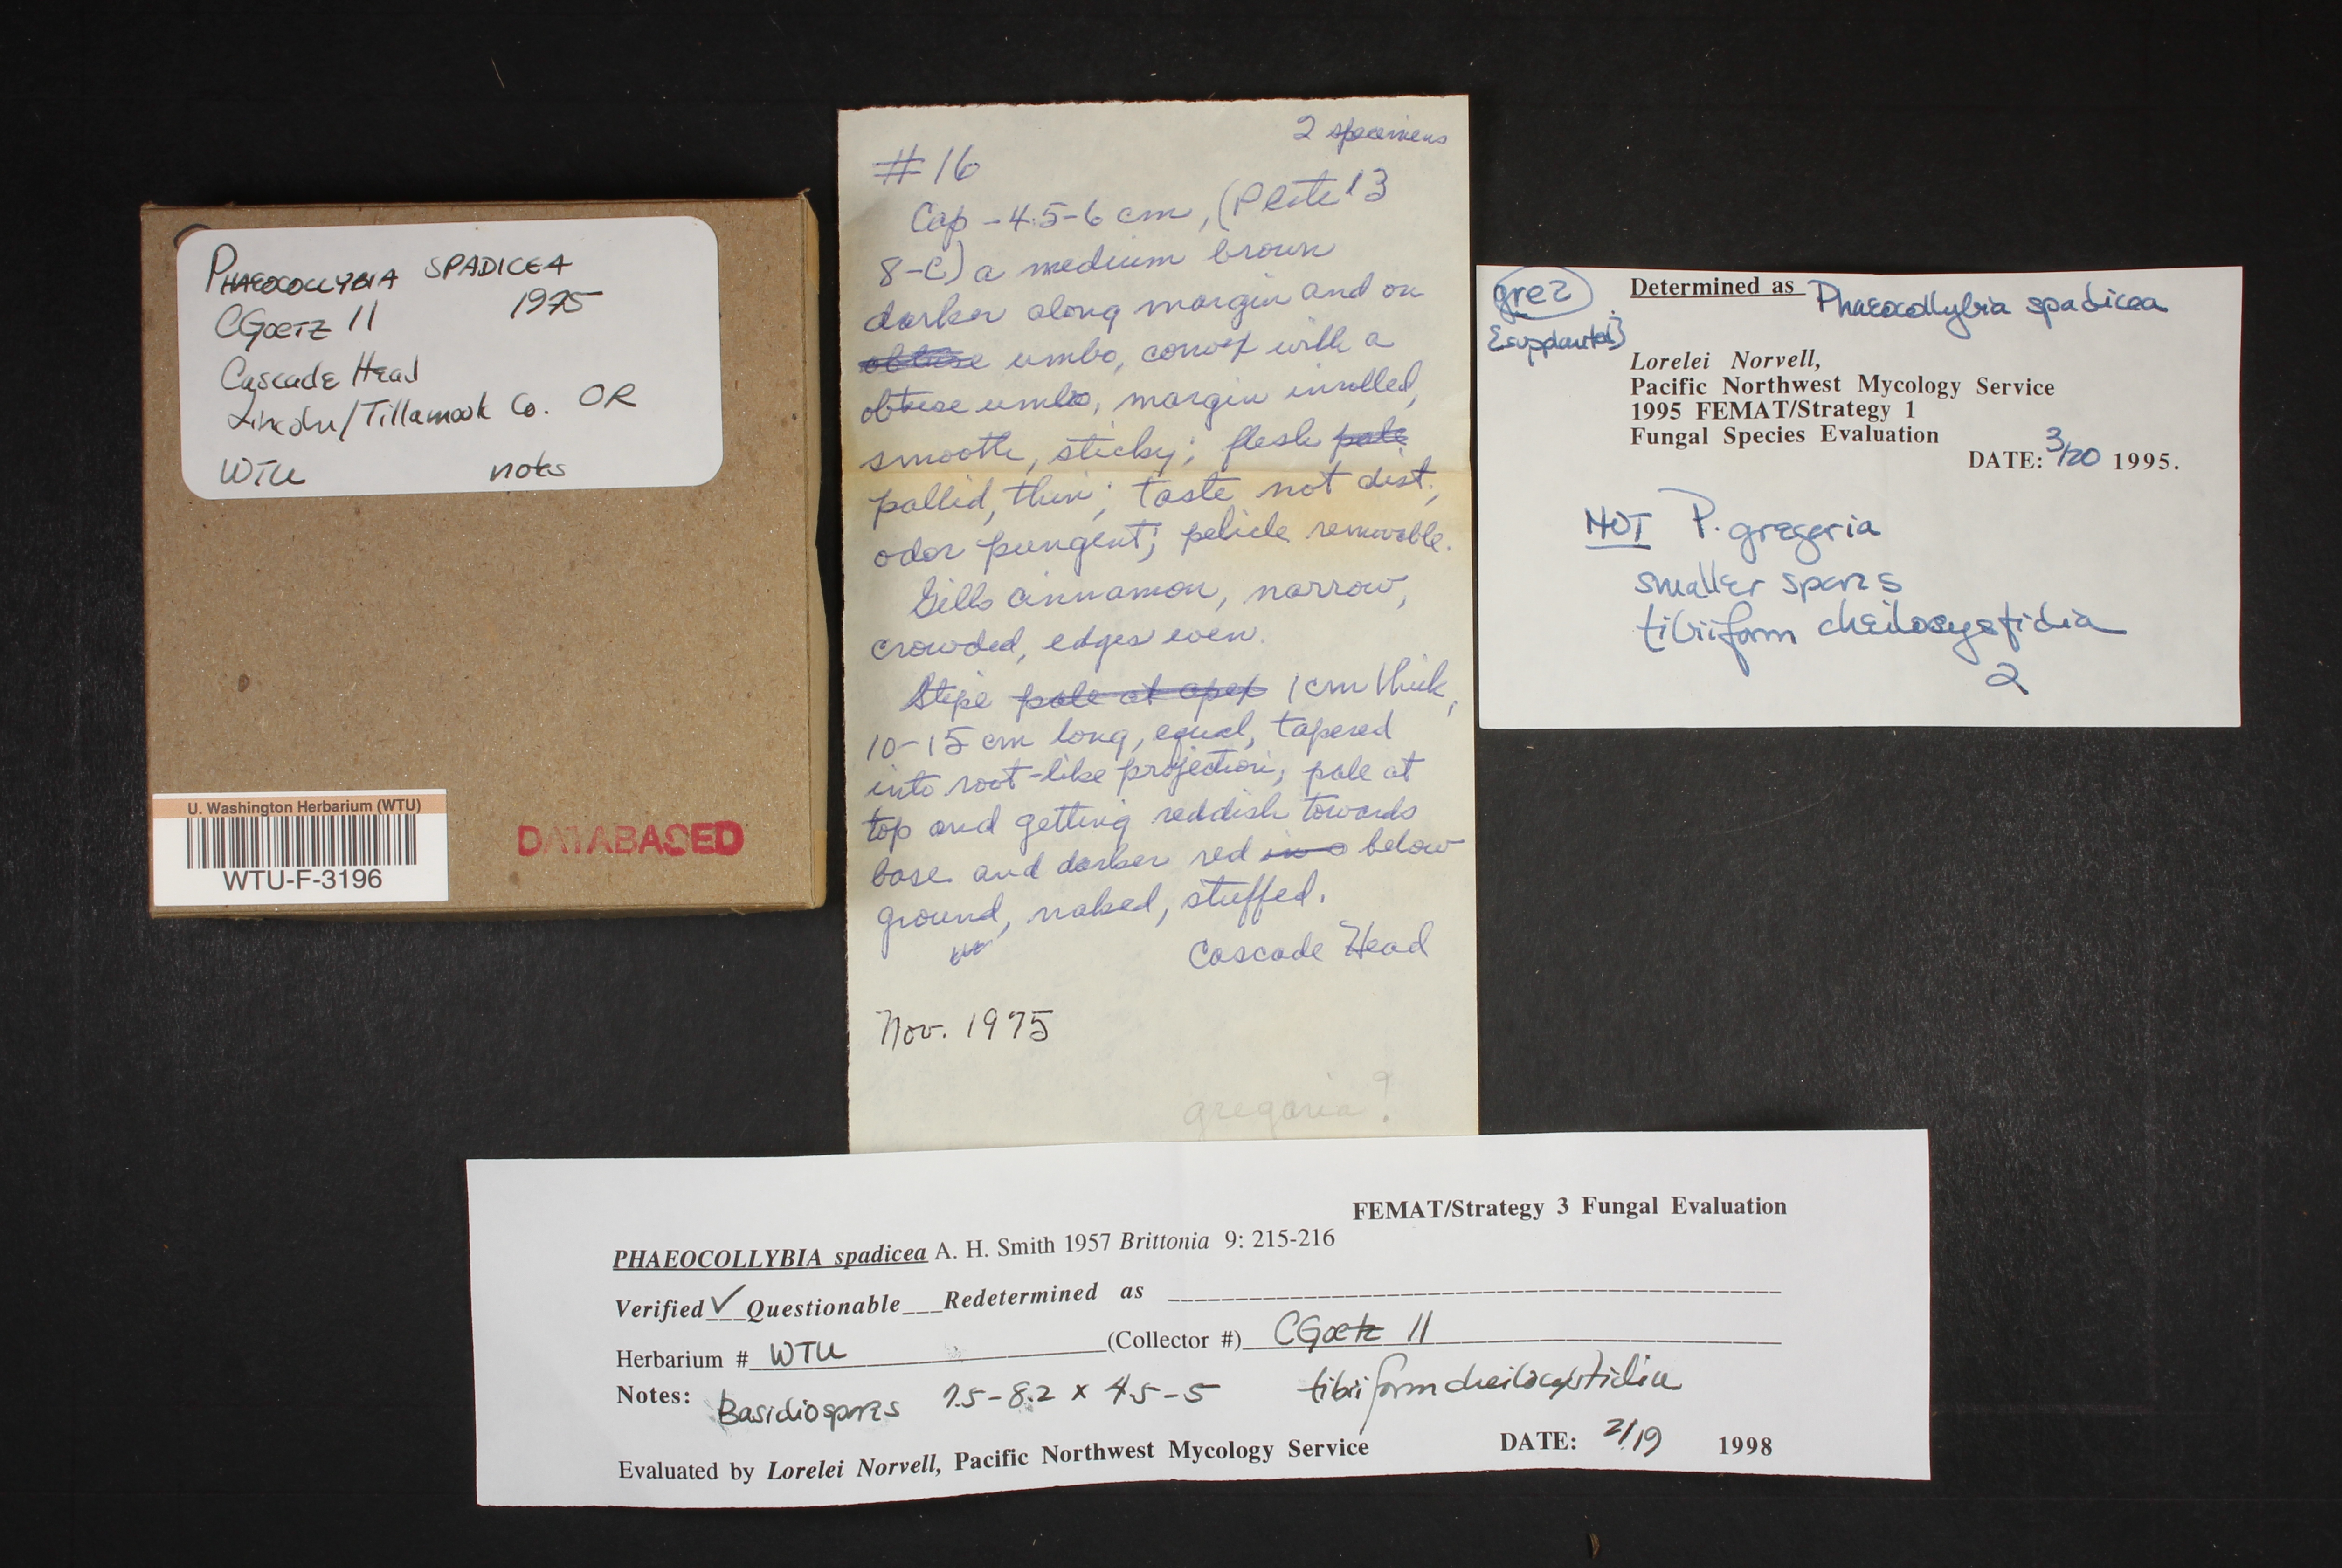 PHAEOCOLLYBIA SPADICEA
CGOETZ 11 1975
Cascade Head
Lincoln/Tillamook Co. OR
WTU notes
U. Washington Herbarium (WTU)
WTU-F-3196
DATABASED
2 specimens
#16
Cap - 4.5-6 cm, (Plate 13
8-C) a medium brown
darker along margin and on
obtuse umbo, convex with a
obtuse umbo, margin inrolled,
smooth, sticky; flesh pale
pallid, thin; taste not dist.;
odor pungent; pelicle removable.
Gills cinnamon, narrow,
crowded, edges even.
Stipe pale at apex 1 cm thick,
10-15 cm long, equal, tapered
into root-like projection; pale at
top and getting reddish towards
base and darker red in a below
ground, naked, stuffed.
Cascade Head
Nov. 1975
gregaria?
gre2
Determined as Phaeocollybia spadicea
Lorelei Norvell,
Pacific Northwest Mycology Service
1995 FEMAT/Strategy 1
Fungal Species Evaluation
DATE: 3/20 1995.
NOT P. gregaria
smaller spores
tibiiform cheilocystidia
2
FEMAT/Strategy 3 Fungal Evaluation
PHAEOCOLLYBIA spadicea A. H. Smith 1957 Brittonia 9: 215-216
Verified ✓ Questionable ___ Redetermined as
Herbarium # WTU (Collector #) CGoetz 11
Notes: Basidiospores 7.5-8.2 x 4.5-5 tibiiform cheilocystidia
Evaluated by Lorelei Norvell, Pacific Northwest Mycology Service DATE: 2/19 1998